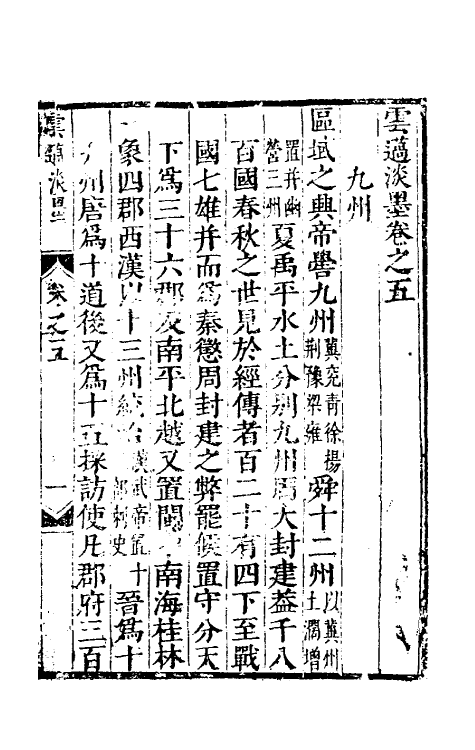 雲薖淡墨卷之五
九州
區域之興帝嚳九州冀兗青徐揚荆豫梁雍舜十二州以冀州土濶增
置并幽營三州夏禹平水土分别九州周大封建益千八
百國春秋之世見於經傳者百二十有四下至戰
國七雄并而爲秦懲周封建之弊罷侯置守分天
下爲三十六郡及南平北越又置閩南海桂林
象四郡西漢以十三州統治漢武帝置十部刺史晉爲十
九州唐爲十道後又爲十五採訪使凡郡府三百
雲薖淡墨
卷之五
一